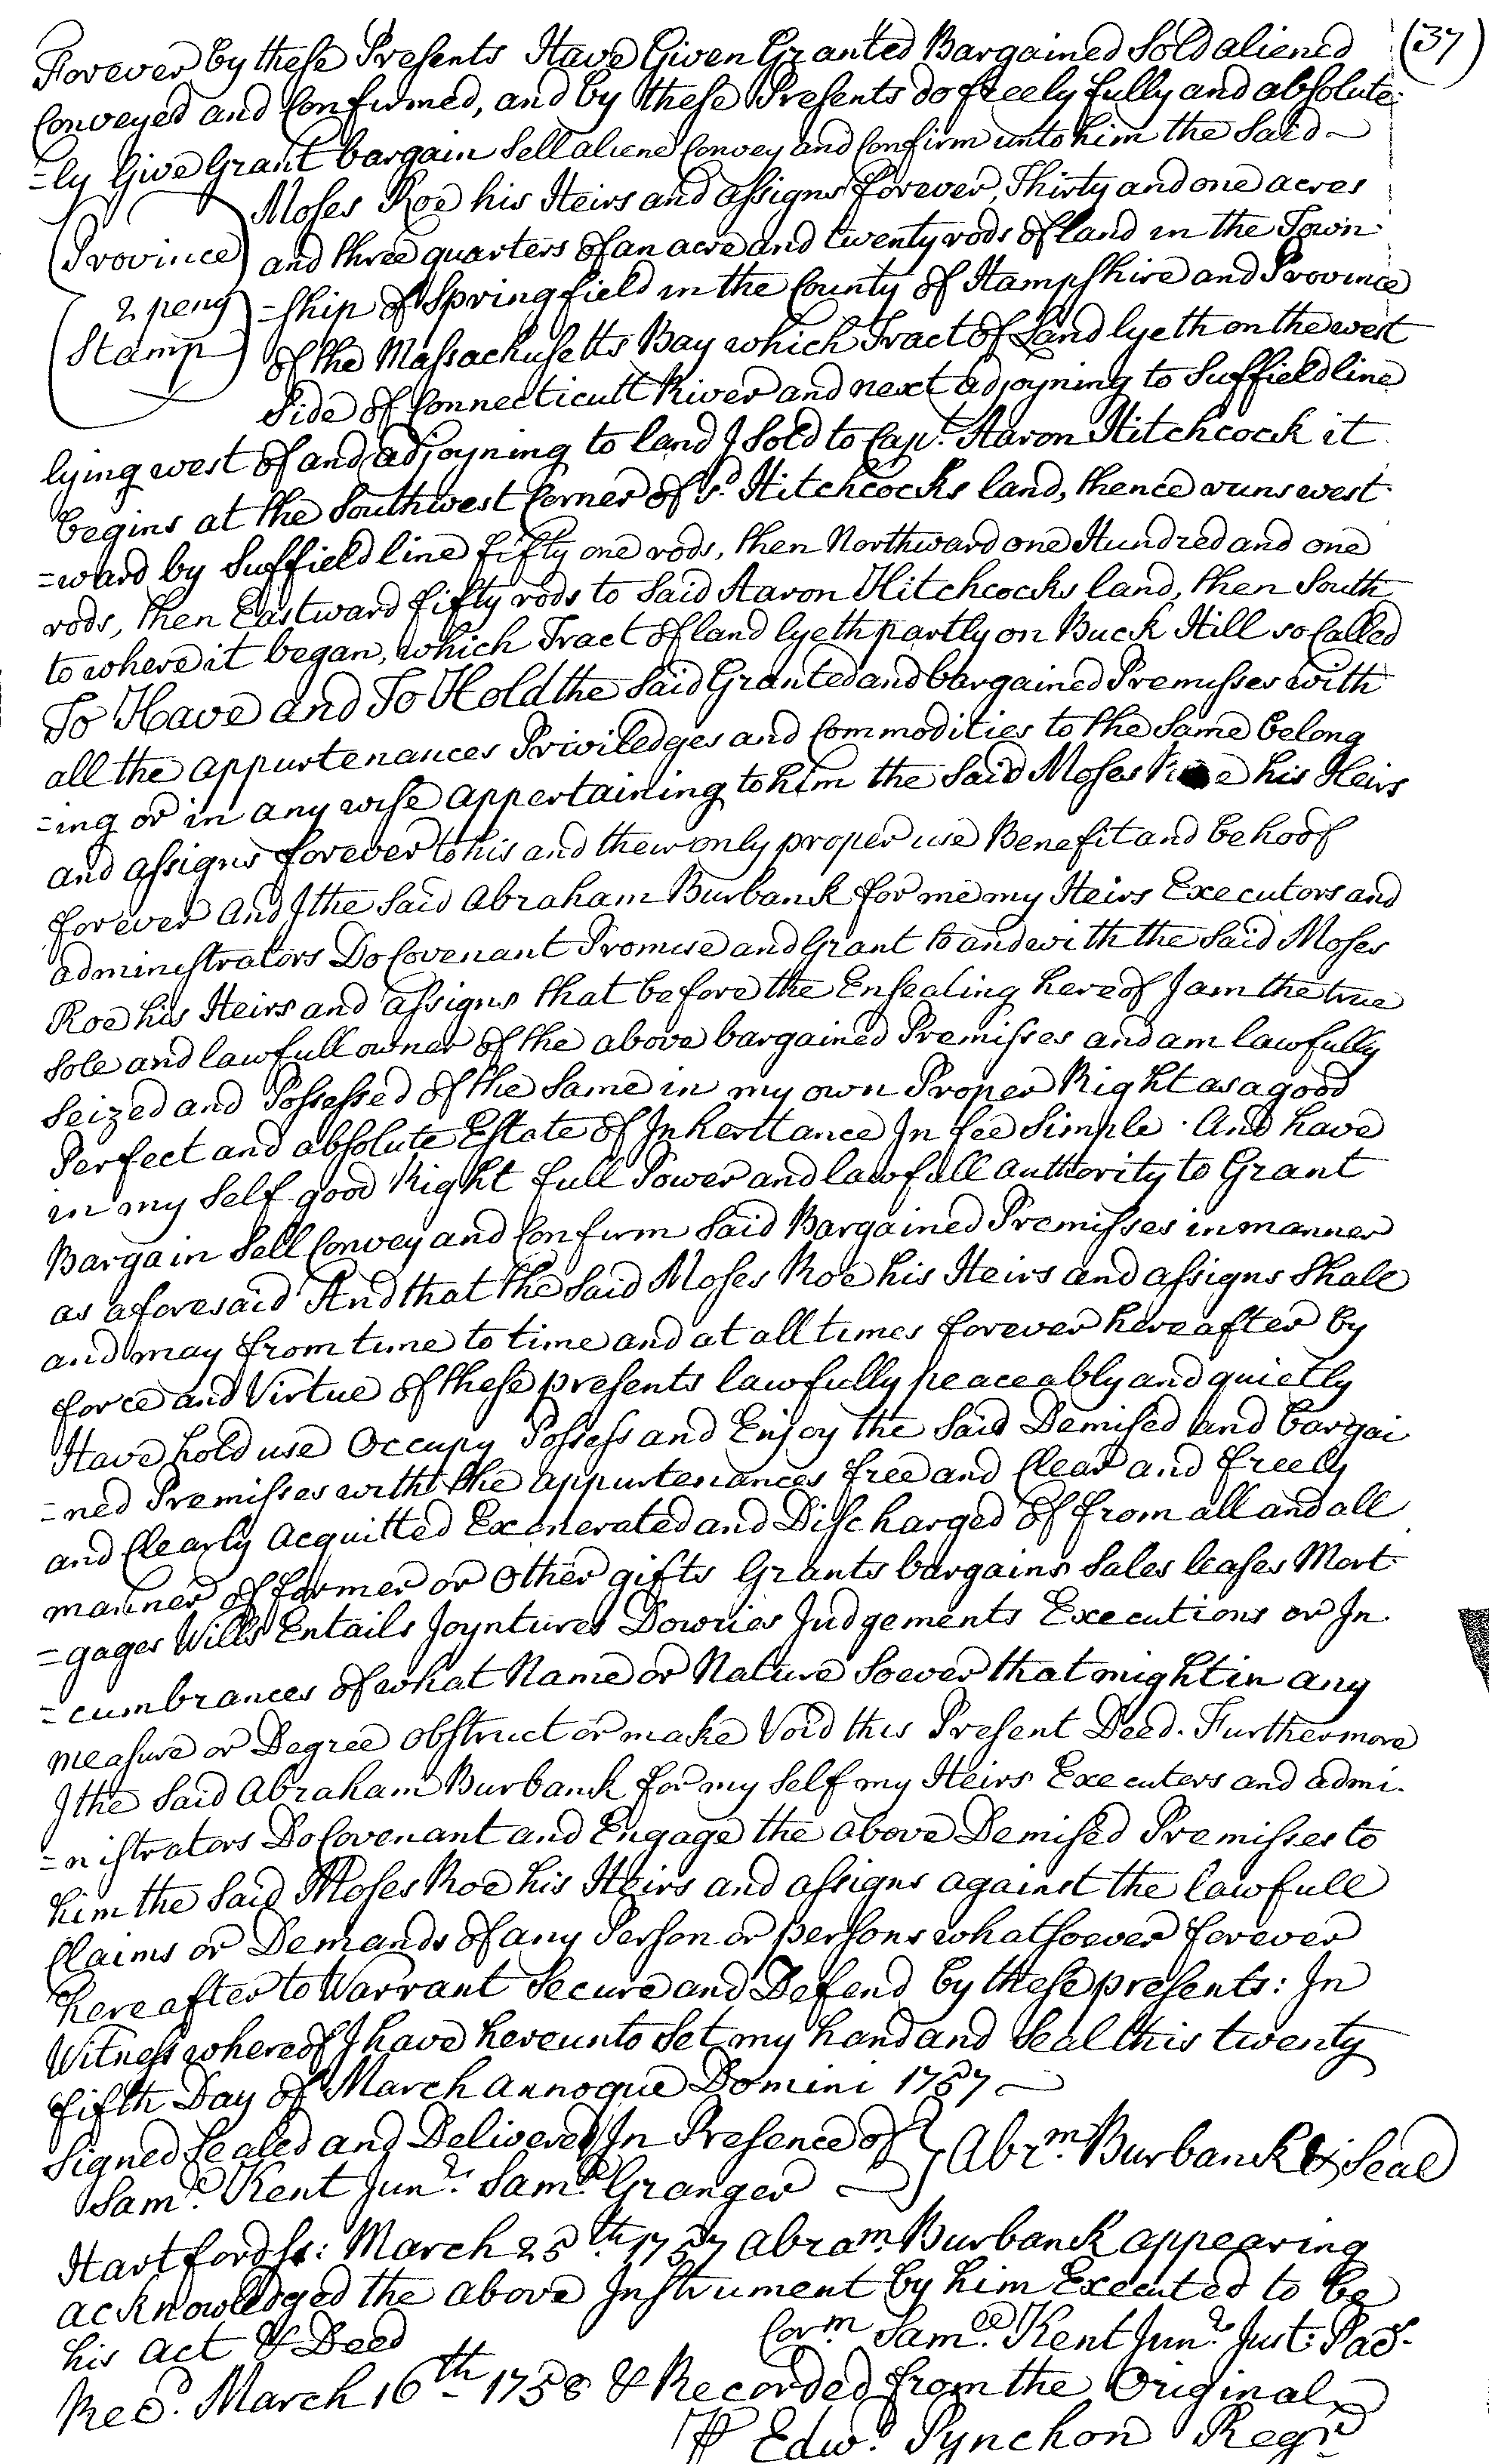 (37)
Forever by these Presents Have Given Granted Bargained Sold aliened
Conveyed and Confirmed, and by these Presents do freely fully and absolute
=ly Give Grant bargain Sell aliene Convey and Confirm unto him the Said
Moses Roe his Heirs and assigns forever, Thirty and one acres
(Province) and three quarters of an acre and twenty rods of land in the Town
2 peny =ship of Springfield in the County of Hampshire and Province
Stamp of the Massachusetts Bay which Tract of Land lyeth on the west
Side of Connecticutt River and next adjoyning to Suffield line
lying west of and adjoyning to land I Sold to Capt. Aaron Hitchcock it
begins at the Southwest Corner of sd. Hitchcocks land, thence runs west
=ward by Suffield line fifty one rods, then Northward one Hundred and one
rods, then Eastward fifty rods to Said Aaron Hitchcocks land, then South
to where it began, which Tract of land lyeth partly on Buck Hill so Called
To Have and To Hold the Said Granted and bargained Premisses with
all the appurtenances Priviledges and Commodities to the Same belong
=ing or in any wise appertaining to him the Said Moses Roe his Heirs
and assigns forever to his and their only proper use Benefit and behoof
forever And I the Said Abraham Burbank for me my Heirs Executors and
administrators Do Covenant Promise and Grant to and with the Said Moses
Roe his Heirs and assigns that before the Ensealing hereof I am the true
Sole and lawfull owner of the above bargained Premisses and am lawfully
Seized and Possessed of the Same in my own Proper Right as a good
Perfect and absolute Estate of Inheritance In fee Simple. And have
in my Self good Right full Power and lawfull authority to Grant
Bargain Sell Convey and Confirm Said Bargained Premisses in manner
as aforesaid And that the Said Moses Roe his Heirs and assigns Shall
and may from time to time and at all times forever hereafter by
force and Virtue of these presents lawfully peaceably and quietly
Have hold use Occupy Possess and Enjoy the Said Demised and bargai
=ned Premisses with the appurtenances free and Clear and freely
and Clearly acquitted Exonerated and Discharged of from all and all
manner of former or other gifts Grants bargains Sales leases Mort
=gages Wills Entails Joyntures Dowries Judgements Executions or In
=cumbrances of what Name or Nature Soever that might in any
measure or Degree obstruct or make Void this Present Deed. Furthermore
I the Said Abraham Burbank for my Self my Heirs Executers and admi
=nistrators Do Covenant and Engage the above Demised Premisses to
him the Said Moses Roe his Heirs and assigns against the lawfull
Claims or Demands of any Person or persons whatsoever forever
hereafter to Warrant Secure and Defend by these presents: In
Witness whereof I have hereunto Set my hand and Seal this twenty
fifth Day of March annoque Domini 1757
Signed Sealed and Delivered In Presence of } Abrm. Burbank & Seal
Saml. Kent Junr. Saml. Granger
Hartford ss: March 25th. 1757 Abram. Burbank appearing
acknowledged the above Instrument by him Executed to be
his act & Deed Corm Saml. Kent Junr. Just: Pac.
Recd. March 16th 1758 & Recorded from the Original
⅌ Edwd. Pynchon Regr